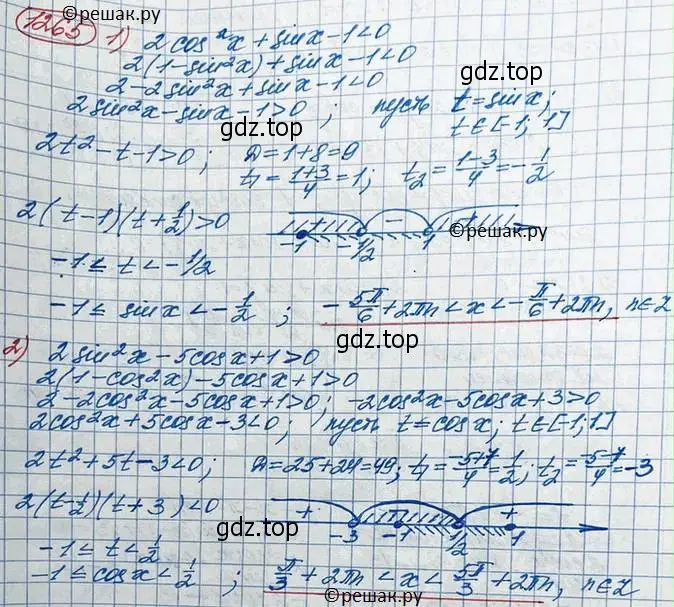 ©решак.ру
1265 1) 2cos²x + sinx - 1 < 0
2(1 - sin²x) + sinx - 1 < 0
2 - 2sin²x + sinx - 1 < 0
gdz.top
2sin²x - sinx - 1 > 0 ; пусть t = sinx;
t ∈ [-1; 1]
gdz.top
2t² - t - 1 > 0 ; D = 1 + 8 = 9
t₁ = (1+3)/4 = 1; t₂ = (1-3)/4 = -1/2
2(t - 1)(t + 1/2) > 0
+ - +
-1 -1/2 1
©решак.ру
-1 ≤ t < -1/2
-1 ≤ sinx < -1/2 ; -5π/6 + 2πn < x < -π/6 + 2πn, n ∈ Z
2) 2sin²x - 5cosx + 1 > 0
gdz.top
2(1 - cos²x) - 5cosx + 1 > 0
2 - 2cos²x - 5cosx + 1 > 0; -2cos²x - 5cosx + 3 > 0
2cos²x + 5cosx - 3 < 0; пусть t = cosx; t ∈ [-1; 1]
2t² + 5t - 3 < 0; D = 25 + 24 = 49; t₁ = (-5+7)/4 = 1/2; t₂ = (-5-7)/4 = -3
2(t - 1/2)(t + 3) < 0
+ +
-3 -1 1/2 1
gdz.top
-1 ≤ t < 1/2
-1 ≤ cosx < 1/2 ; π/3 + 2πn < x < 5π/3 + 2πn, n ∈ Z
©решак.ру